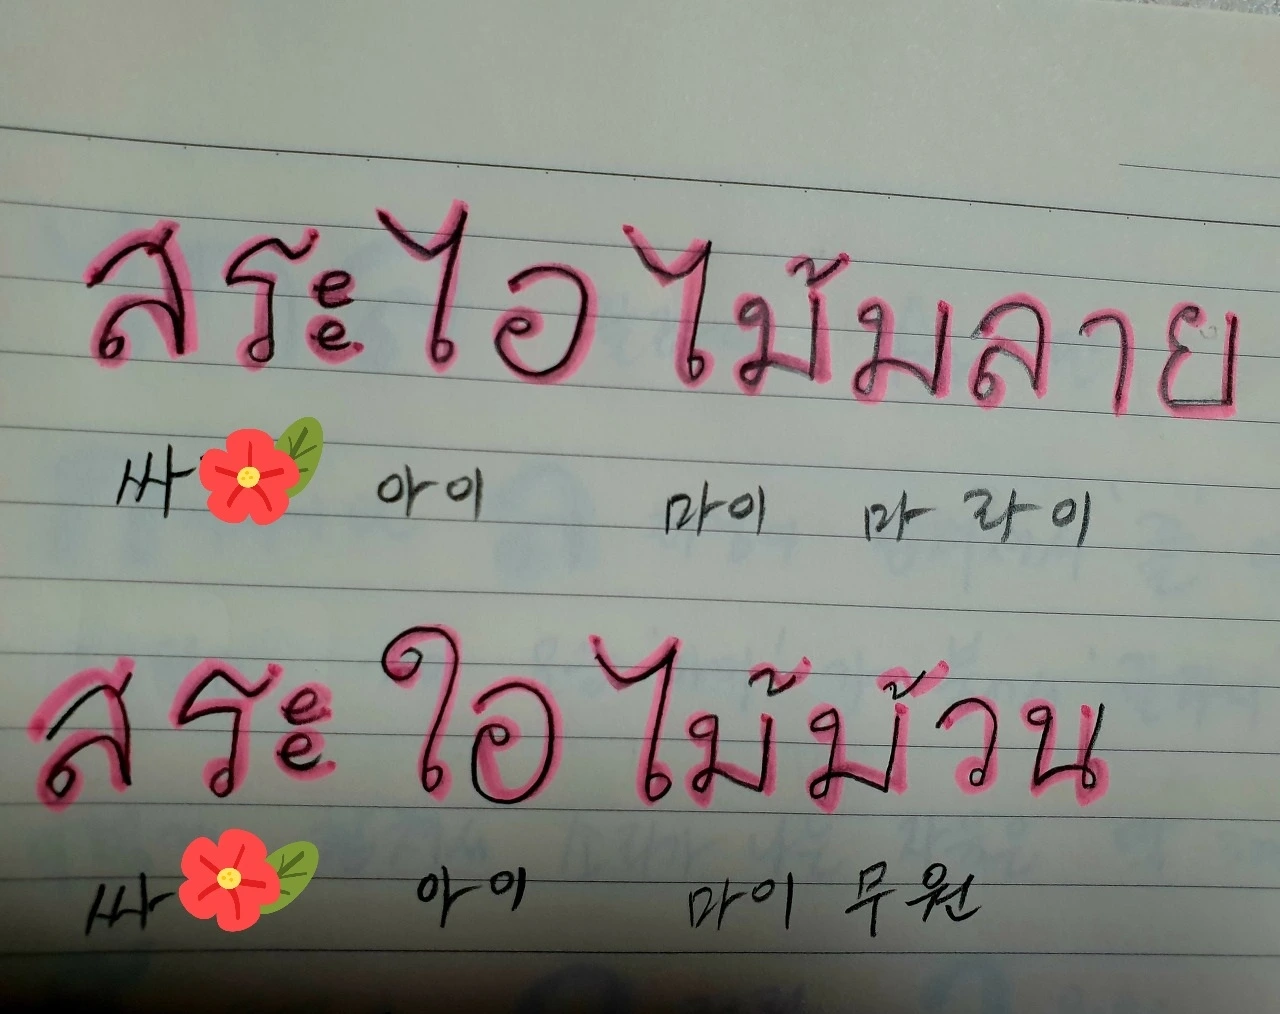 สระไอ ไม้มลาย
싸 아이 마이 마 라이
สระใอ ไม้ม้วน
싸 아이 마이 무원